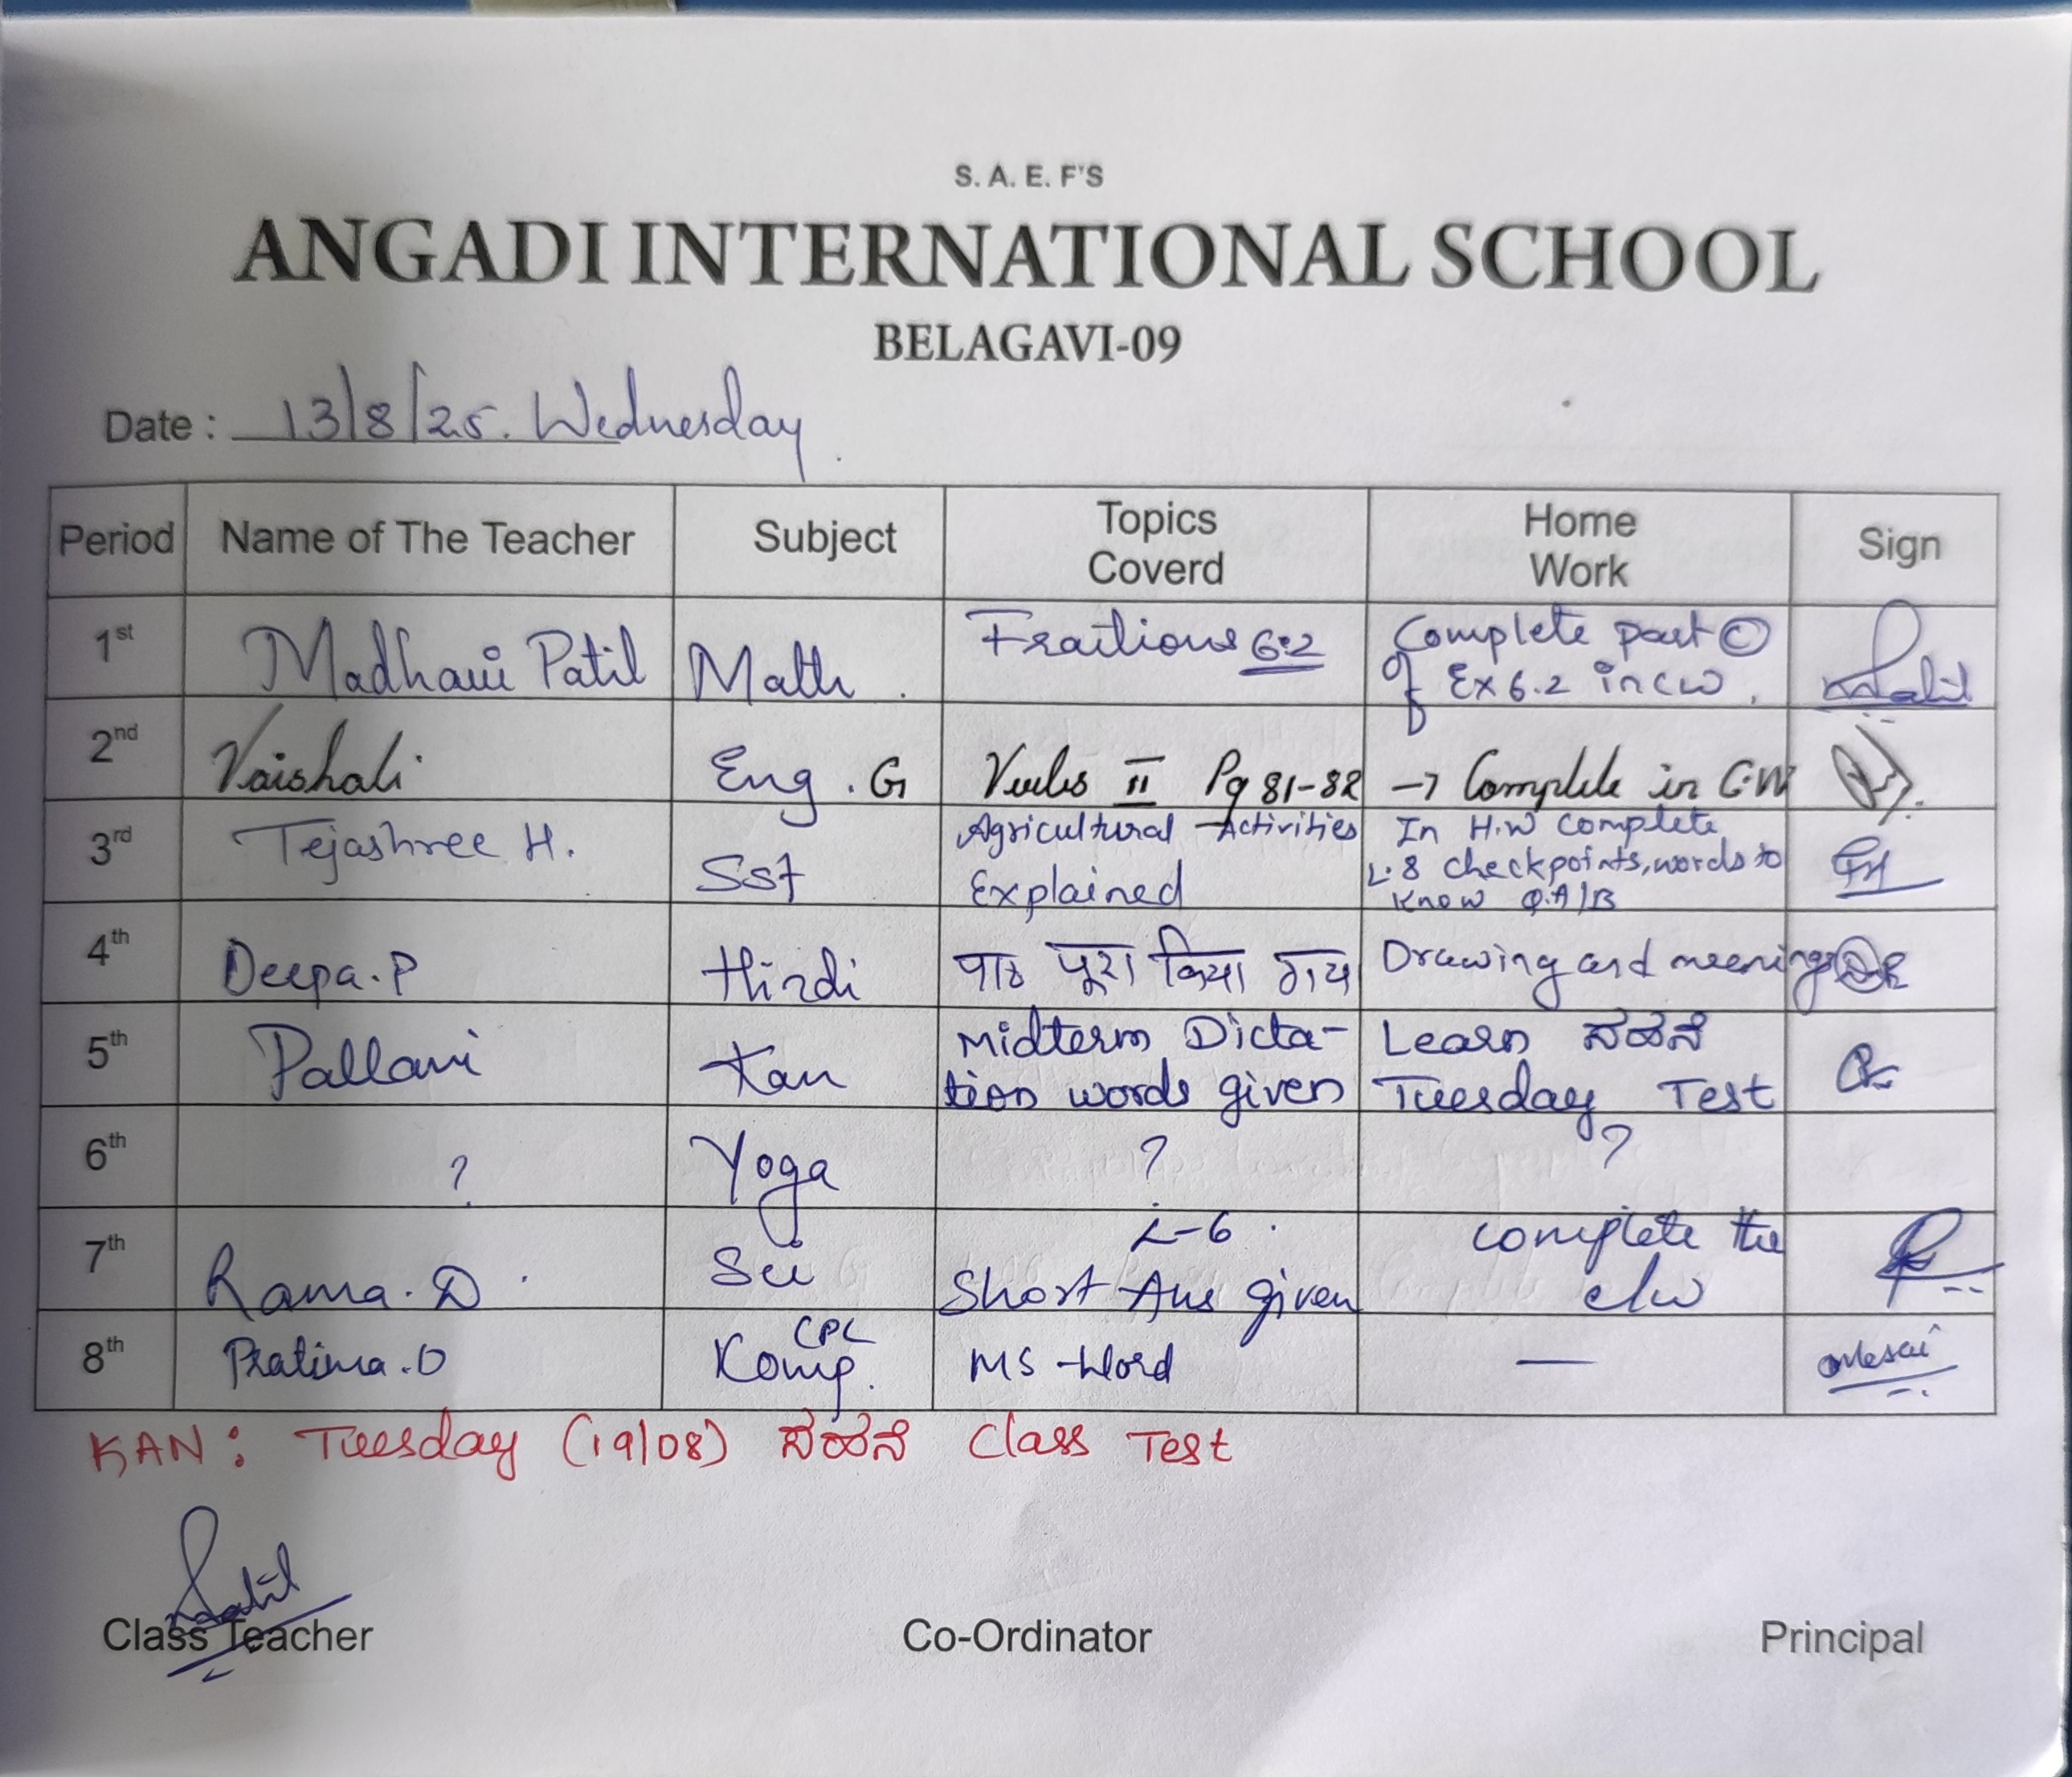 S. A. E. F'S
ANGADI INTERNATIONAL SCHOOL
BELAGAVI-09
Date : 13/8/25. Wednesday.
Period Name of The Teacher Subject Topics Coverd Home Work Sign
1st Madhavi Patil Math. Fractions 6.2 Complete part © of Ex 6.2 in CW.
2nd Vaishali Eng. G Verbs II Pg 81-82 → Complete in C.W
3rd Tejashree H. Sst Agricultural Activities Explained In H.W complete L.8 checkpoints, words to know Q.A/B
4th Deepa.P Hindi पाठ पूरा किया गय Drawing and meenings
5th Pallavi Kan Midterm Dicta-tion words given Learn ಪಠಣೆ Tuesday Test
6th ? Yoga ? ?
7th Rama. D. Sci L-6. Short Ans given complete the c/w
8th Pratima.D Comp. CPL MS-Word —
KAN: Tuesday (19/08) Class Test
Class Teacher Co-Ordinator Principal